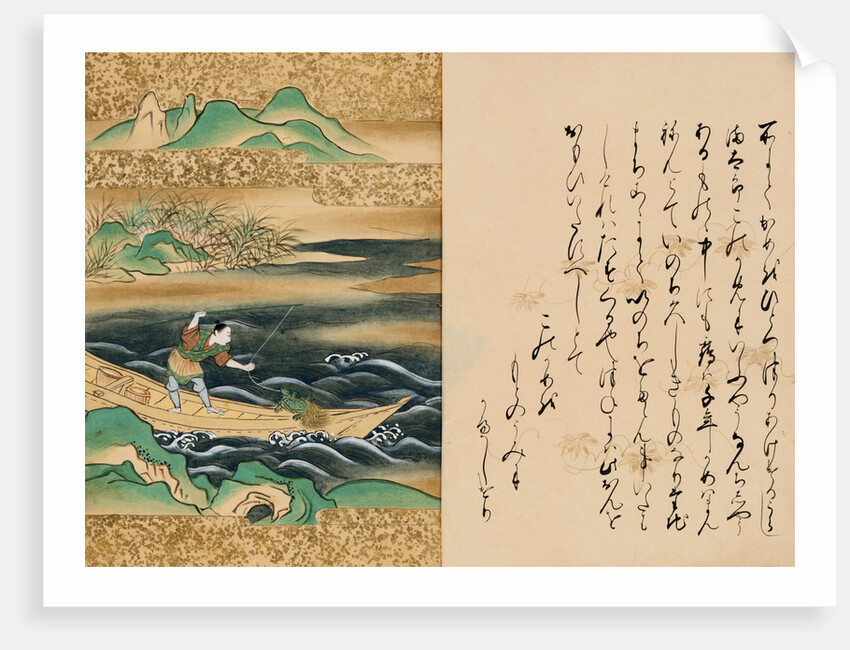 所にてかめをひとつつりあけけるうらし
ま太郎このかめにいふやうなんちしやう
あるものゝ中にも鶴は千年かめはまん
ねんとていのち久しきものなりたち
まちこゝにていのちをたゝん事いたは
しけれはたすくるなりつねにはこのおんを
おもひいたすへしとて
このかめを
もとのうみに
かへしける